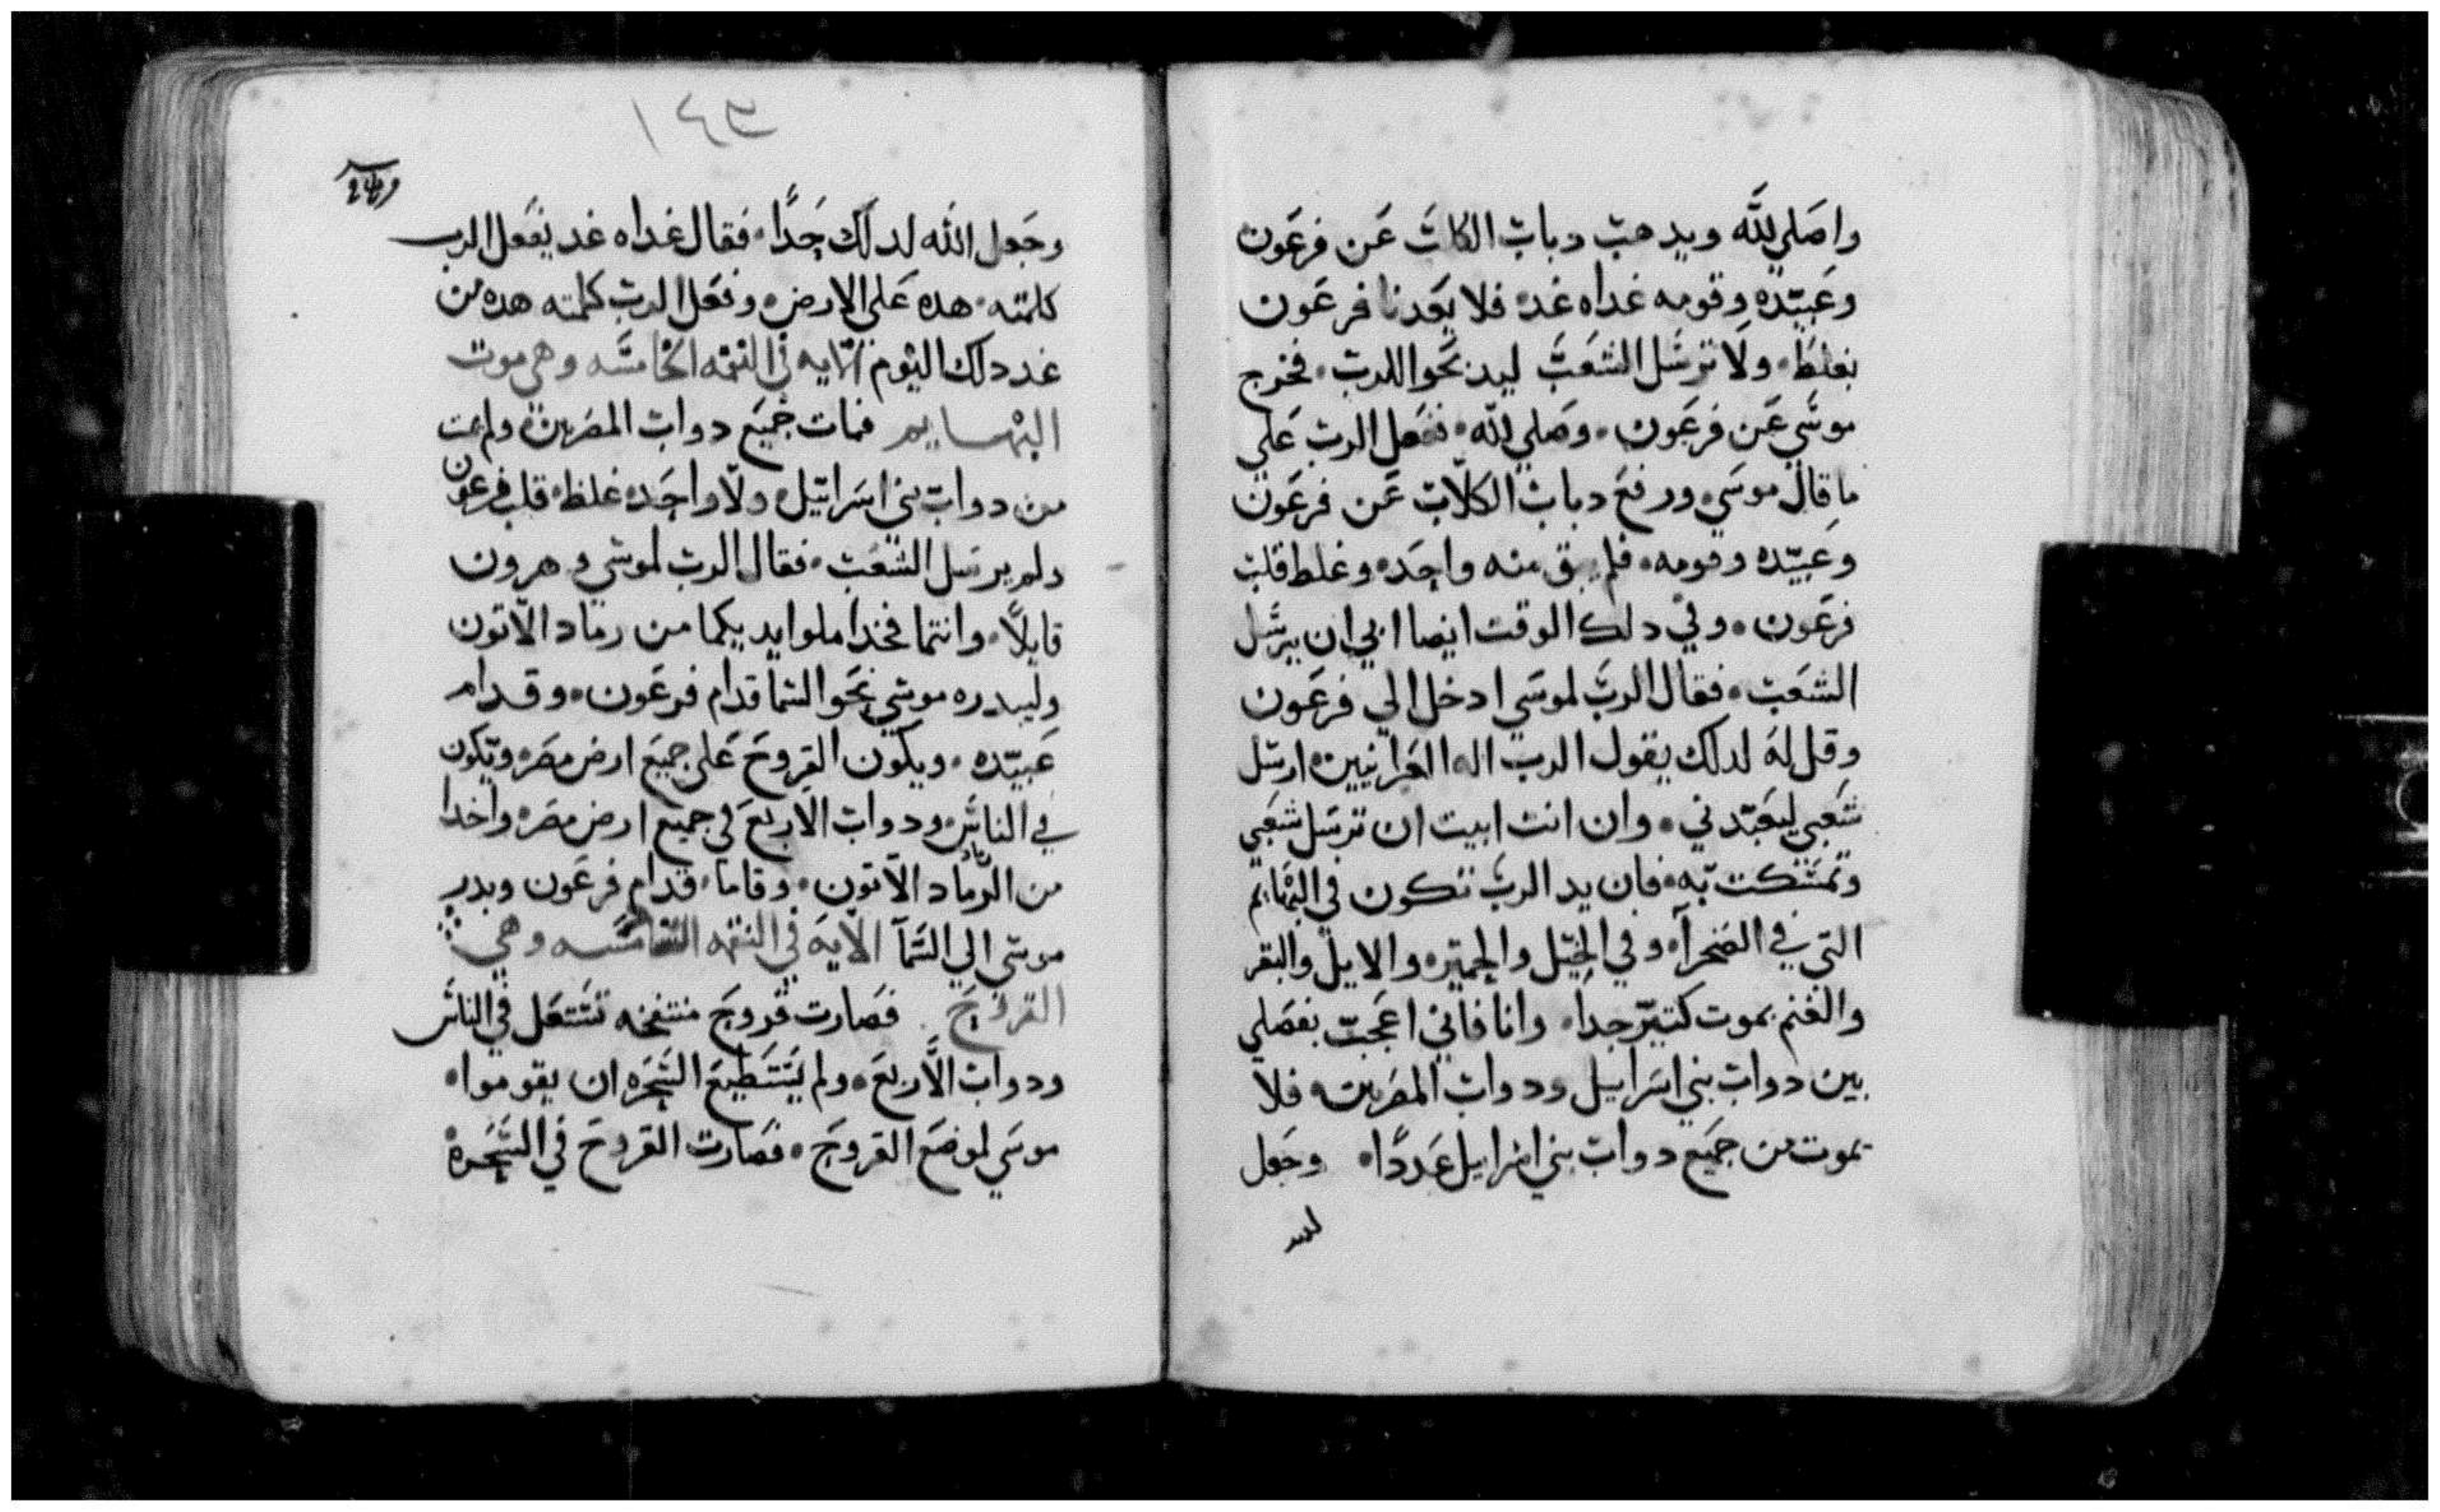 واصلي لله ويدهب دباب الكلاب عن فرعون
وعبيده وقومه غداه غد فلا يعدنا فرعون
بغلط ولا ترسل الشعب ليدبحوا للرب فخرج
موسي عن فرعون وصلي لله ففعل الرب علي
ما قال موسي ورفع دباب الكلاب عن فرعون
وعبيده وقومه فلم يبق منه واحده وغلط قلب
فرعون وفي دلك الوقت ايضا ابي ان يرسل
الشعب فقال الرب لموسي ادخل الي فرعون
وقل له لدلك يقول الرب اله العبرانيين ارسل
شعبي ليتعبدني وان انت ابيت ان ترسل شعبي
وتمسكت به فان يد الرب تكون في البهايم
التي في الصحرآ وفي الخيل والحمير والابل والبقر
والغنم بموت كتير جدا وانا فاني اعجب بفصلي
بين دواب بني اسراييل ودواب المصريين فلا
يموت من جميع دواب بني اسراييل عددا وجعل
١٤٣
وجعل الله لدلك حدا فقال غداه غد يفعل الرب
كلمته هده علي الارض وفعل الرب كلمته هده من
غد دلك اليوم الايه في النقمه الخامسه وهي موت
البهايم فمات جميع دواب المصريين ولم يمت
من دواب بني اسراييل ولا واحده غلظ قلب فرعون
ولم يرسل الشعب فقال الرب لموسي وهرون
قايلا وانتما فخدا ملوا يديكما من رماد الاتون
وليدره موسي نحو السما قدام فرعون وقدام
عبيده ويكون القروح علي جميع ارض مصر ويكون
في الناس ودواب الاربع في جميع ارض مصر واخدا
من الرماد الاتون وقاما قدام فرعون وبدر
موسي الي السمآ الايه في النقمه السادسه وهي
القروح فصارت قروح منتفخه تشتعل في الناس
ودواب الاربع ولم يستطيع السحره ان يقوموا
موسي لموضع القروح فصارت القروح في السحره